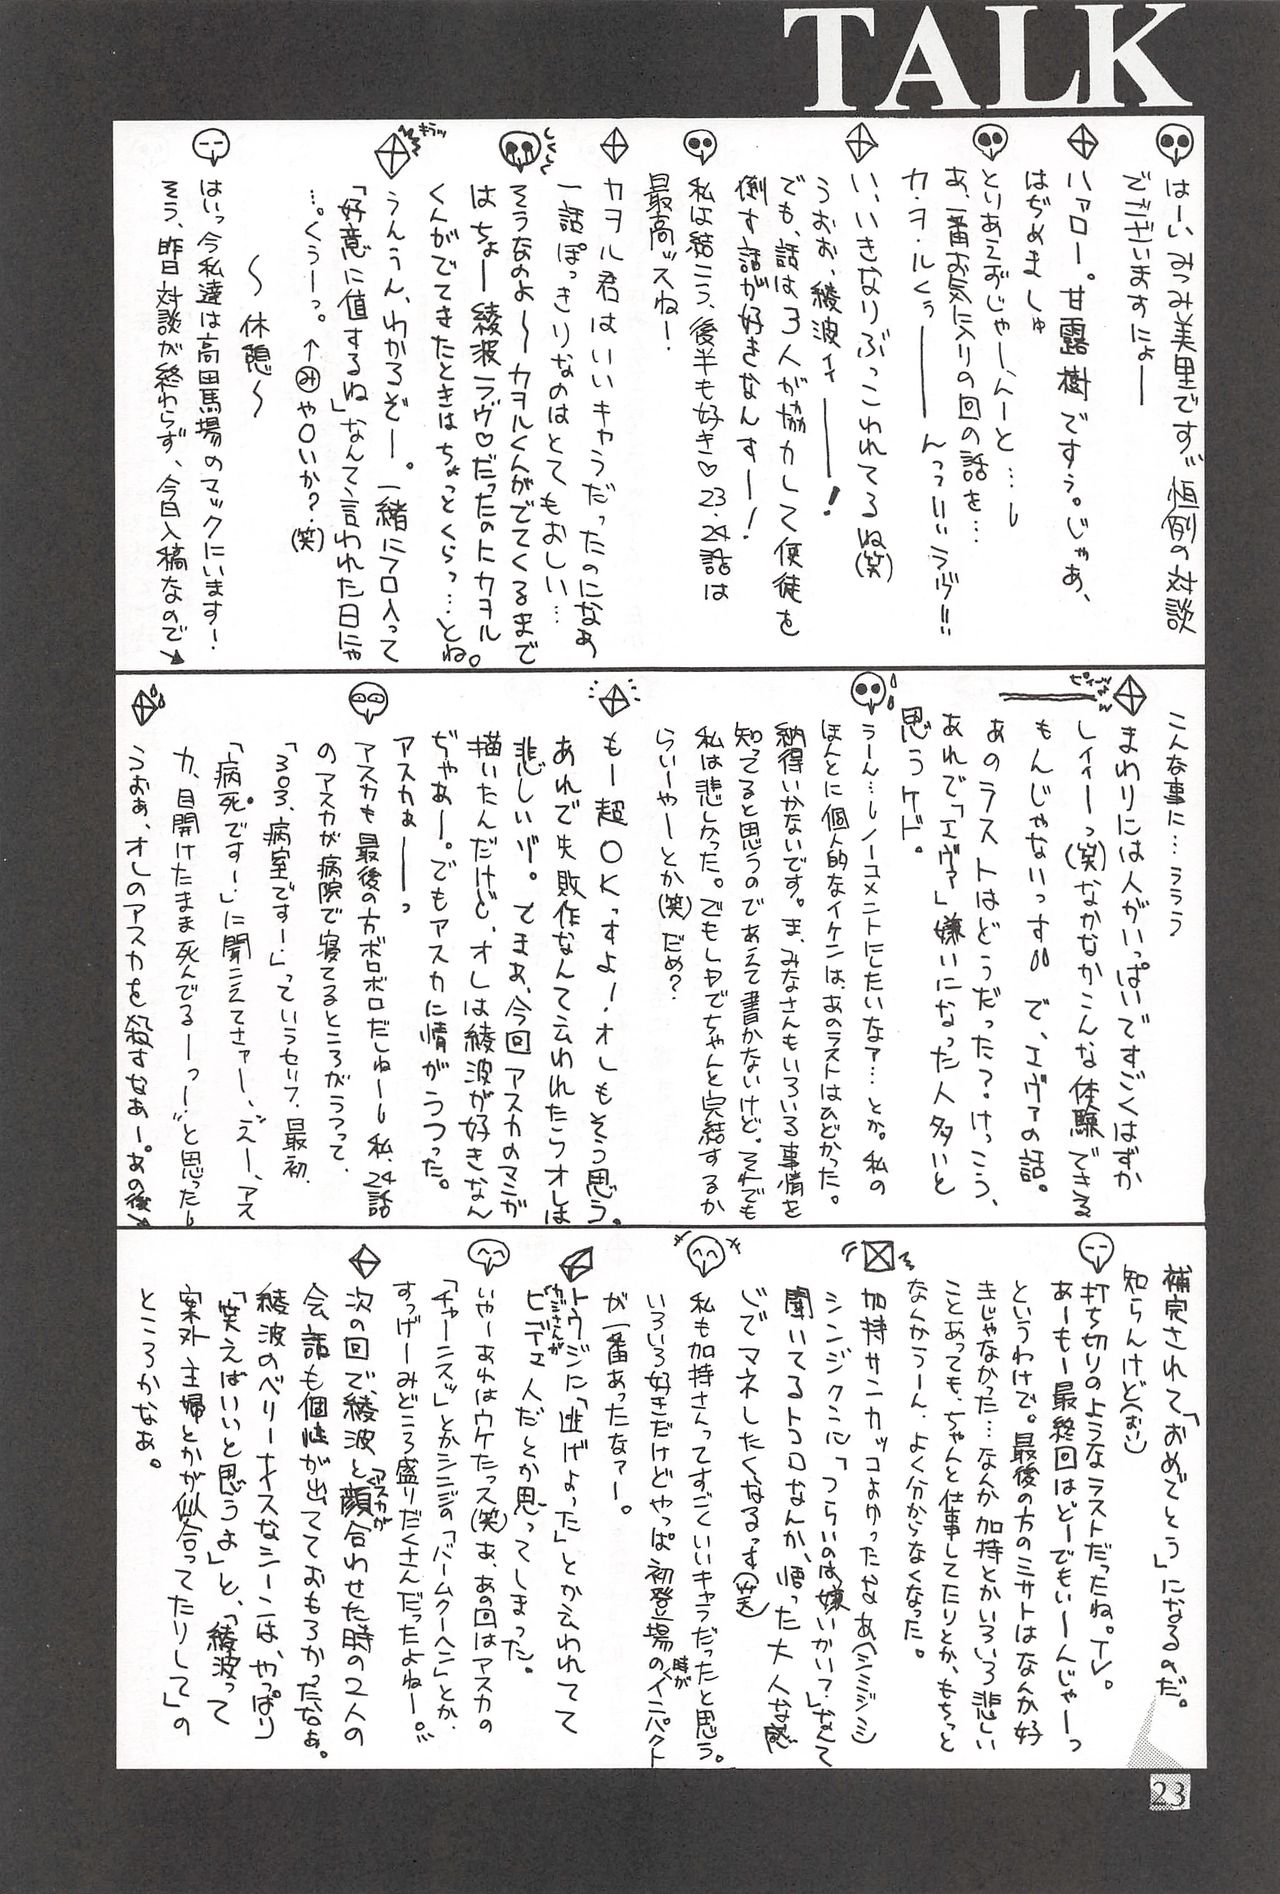 TALK
はーいみつみ美里です〃恒例の対談
でございますにょー
ハァロー。甘露樹ですぅ。じゃあ、
はぢめましゅ
とりあえずじゃー、んーと…し
あ、一番お気に入りの回の話を…
カ・ヲ・ルくぅーーんっっ!!!ラヴ!!!
い、いきなりぶっこわれてるね(笑)
うおぉ、綾波ィィーーー!
でも、話は3人が協力して使徒を
倒す話が好きなんすー!
私は結こう、後半も好き♡23.24話は
最高ッスねー!
カヲル君はいいキャラだったのになぁ
一話ぽっきりなのはとてもおしい…
そうなのよ〜カヲルくんがでてくるまで
はちょー綾波ラヴ♡だったのトカヲル。
くんがでてきたときはちょっとくらっ…とね
キラッ
うんうん、わかるぞー。一緒にフロ入って
「好意に値するね」なんて言われた日にゃ
…。くぅーっ。↑みや○いか?(笑)
〜休憩〜
はいっ今私達は高田馬場のマックにいます!
そう、昨日対談が終わらず、今日入稿なので↘
こんな事に…ううう
まわりには人がいっぱいですごくはずか
しィィーっ(笑)なかなかこんな体験できる
もんじゃないっす〃で、エヴァの話。
あのラストはどうだった?けっこう、
あれで「エヴァ」嫌いになった人多いと
思うケド。
うーん…しノーコメントにしたいなァ…とか。私の
ほんとに個人的なイケンは、あのラストはひどかった。
納得いかないです。ま、みなさんもいろいろ事情を
知ってると思うのであえて書かないけど。それでも
私は悲しかった。でもLDでちゃんと完結するか
らいーやーとか(笑)だめ?
もー超OKっすよ!オレもそう思う。
あれで失敗作なんて云われたらオレは
悲しいゾ。でまぁ、今回アスカのマンガ
描いたんだけど、オレは綾波が好きなん
ぢゃあー。でもアスカに情がうつった。
アスカぁーーっ
アスカも最後の方ボロボロだしねーし私、24話
のアスカが病院で寝てるところがうつって、
「303、病室ですー」っていうセリフ、最初
「病死ですー」に聞こえてさァー、えー、アス
カ、目開けたまま死んでるーっ…〃と思ったし
うおぁ、オレのアスカを殺すなぁー。あの後↘
補完されて「おめでとう」になるのだ。
知らんけど(おい)
打ち切りのようなラストだったね。TV。
あーもー最終回はどーでもいーんじゃーっ
というわけで。最後の方のミサトはなんか好
きじゃなかった…なんか加持とかいろいろ悲しい
ことあっても、ちゃんと仕事してたりとか、もちっと
なんかうーん、よく分からなくなった。
加持サンカッコよかったなあ(シミジミ)
シンジクンに「つらいのは嫌いかい?」なんて
聞いてるトコロなんか、悟った大人な感
じでマネしたくなるっす(笑)
私も加持さんってすごくいいキャラだったと思う。
いろいろ好きだけどやっぱ初登場の時がインパクト
が一番あったなァー。
トウジに「逃げよった」とか云われてて
カジさんがビデェ人だとか思ってしまった。
いやーあれはウケたっス(笑)あ、あの回はアスカの
「チャーンスッ」とかシンジの「バームクーヘン」とか、
すっげーみどころ盛りだくさんだったよねー。
次の回で綾波とアスカが顔合わせた時の2人の
会話も個性が出ててておもろかったなぁ。
綾波のベリーナイスなシーンは、やっぱり
「笑えばいいと思うよ」と、「綾波って
案外主婦とかが似合ってたりして」の
ところかなぁ。
23